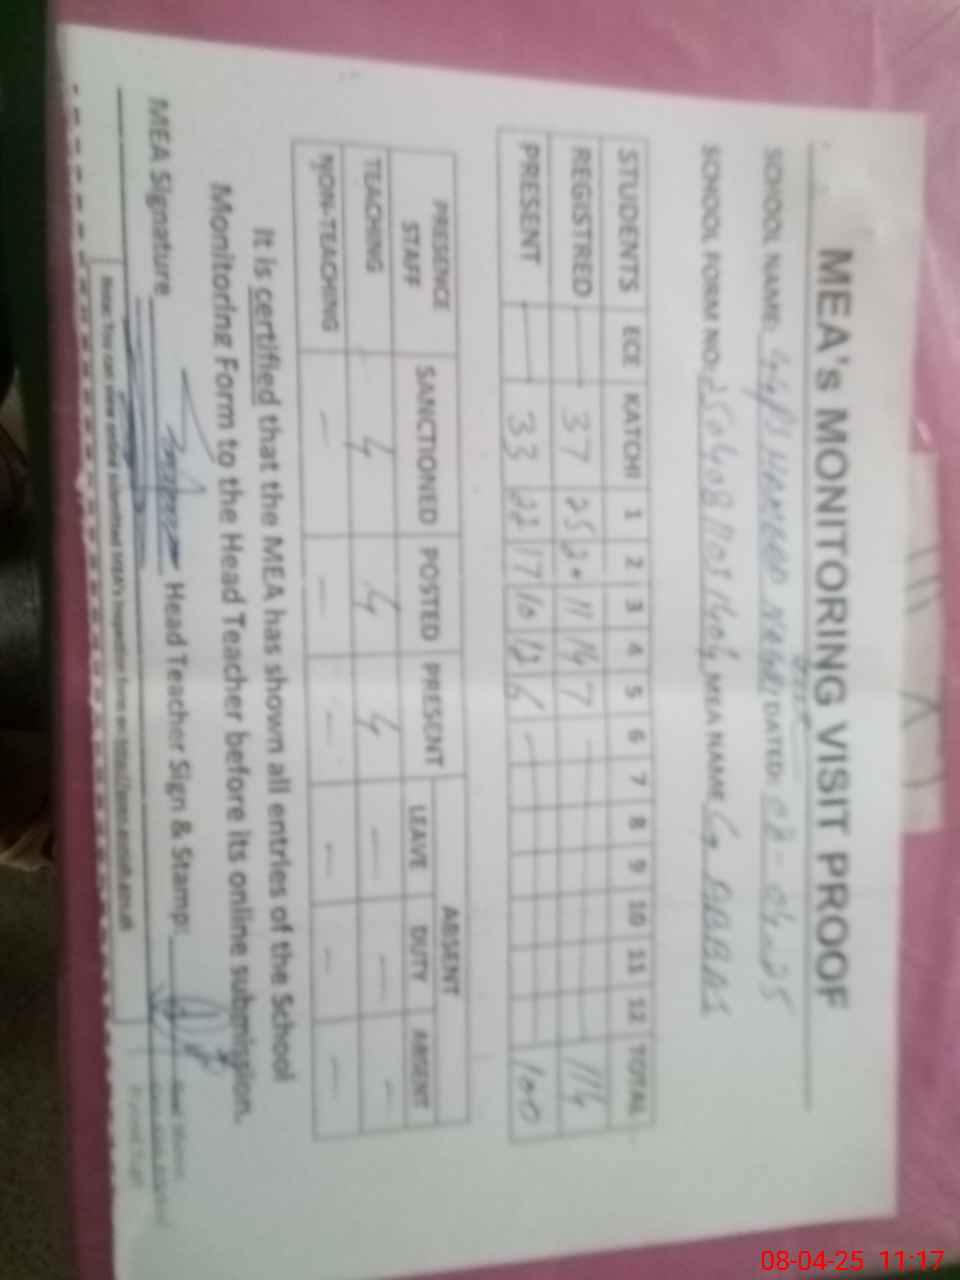 MEA's MONITORING VISIT PROOF
SCHOOL NAME: DATED: 08-04-25
SCHOOL FORM NO: MEA NAME G. ABBAS
STUDENTS ECE KATCHI 1 2 3 4 5 6 7 8 9 10 11 12 TOTAL
REGISTRED — 37 25 20 11 14 7 — 114
PRESENT — 33 22 17 10 12 6 — 100
PRESENCE STAFF SANCTIONED POSTED PRESENT ABSENT
LEAVE DUTY ABSENT
TEACHING 4 4 4 — — —
NON-TEACHING — — — — — —
It is certified that the MEA has shown all entries of the School
Monitoring Form to the Head Teacher before its online submission.
MEA Signature Head Teacher Sign & Stamp:
Note: You can view online submitted MEA's inspection form on
08-04-25 11:17